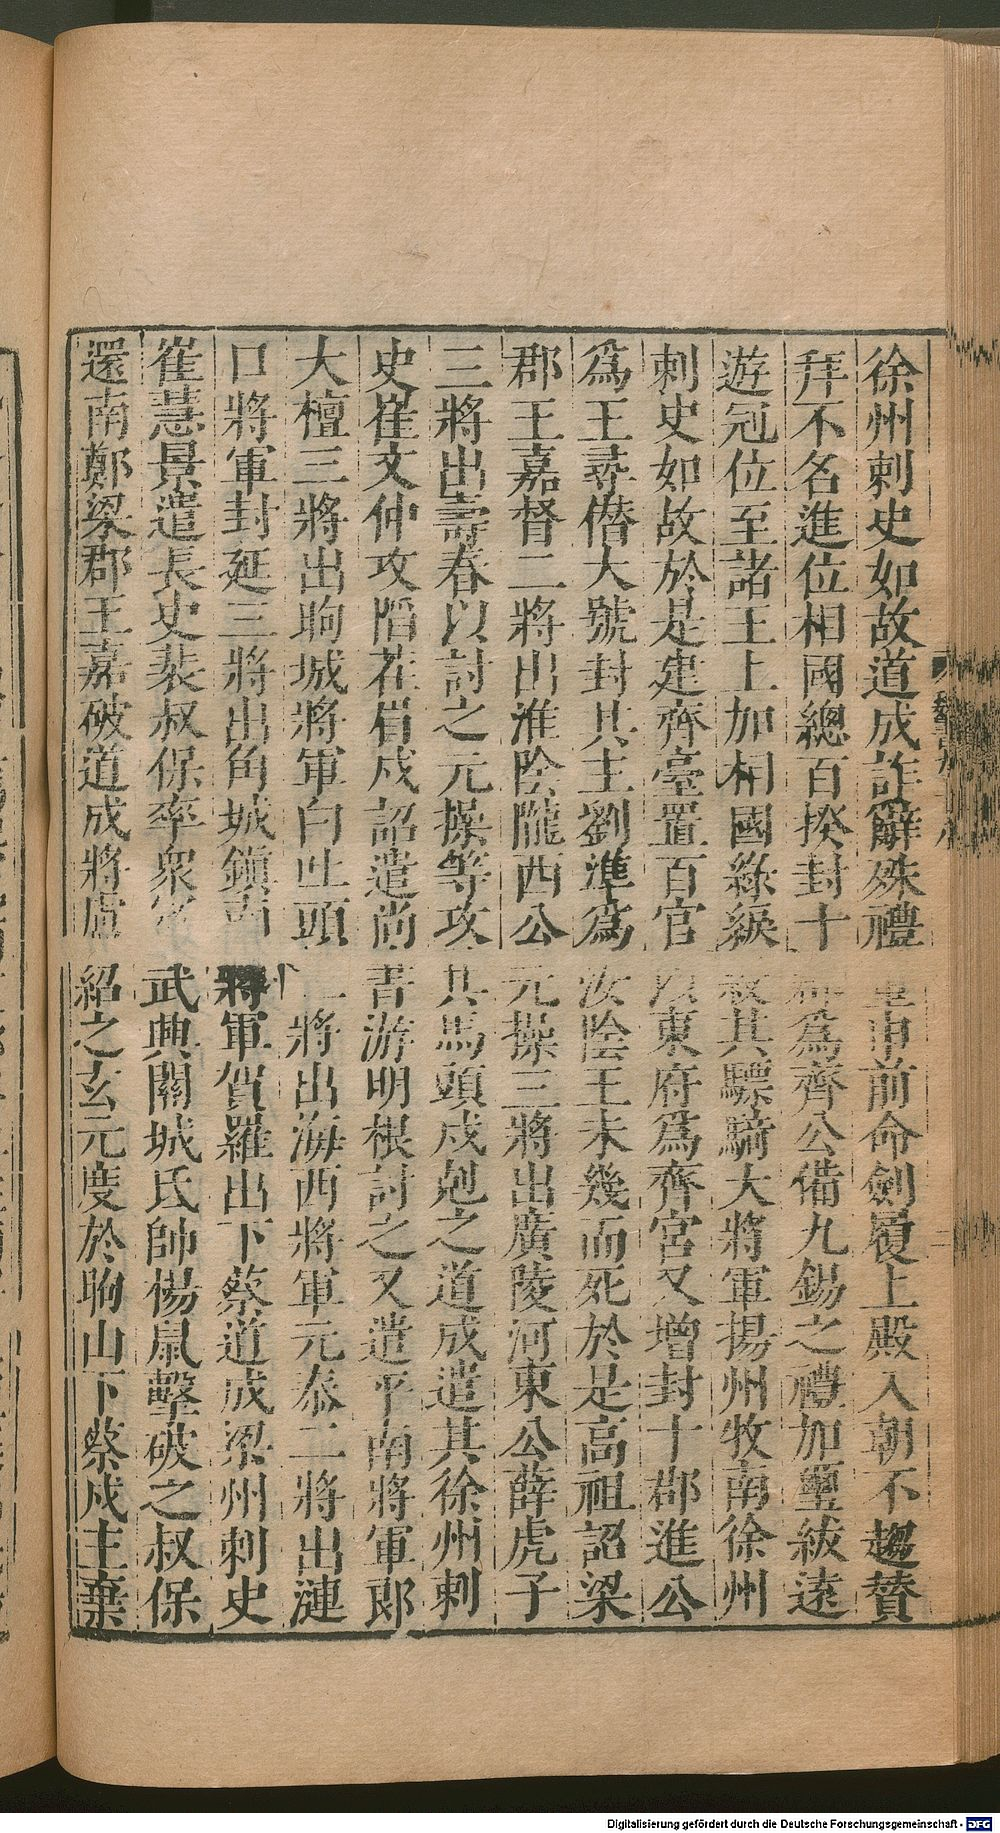 徐州刺史如故道成詐辭殊禮重申前命劍履上殿入朝不趨贊
拜不名進位相國總百揆封十郡為齊公備九錫之禮加璽紱遠
遊冠位至諸王上加相國綠綟綬其驃騎大將軍揚州牧南徐州
刺史如故於是建齊臺置百官以東府為齊宮又增封十郡進公
為王尋僭大號封其主劉準為汝陰王未幾而死於是高祖詔梁
郡王嘉督二將出淮陰隴西公元操三將出廣陵河東公薛虎子
三將出壽春以討之元操等攻其馬頭戍剋之道成遣其徐州刺
史崔文仲攻陷茬眉戍詔遣尚書游明根討之又遣平南將軍郎
大檀三將出朐城將軍白吐頭二將出海西將軍元泰二將出漣
口將軍封延三將出角城鎮南將軍賀羅出下蔡道成梁州刺史
崔慧景遣長史裴叔保率眾寇武興關城氏帥楊鼠擊破之叔保
還南鄭梁郡王嘉破道成將盧紹之玄元度於朐山下蔡戍主棄
Digitalisierung gefördert durch die Deutsche Forschungsgemeinschaft - DFG